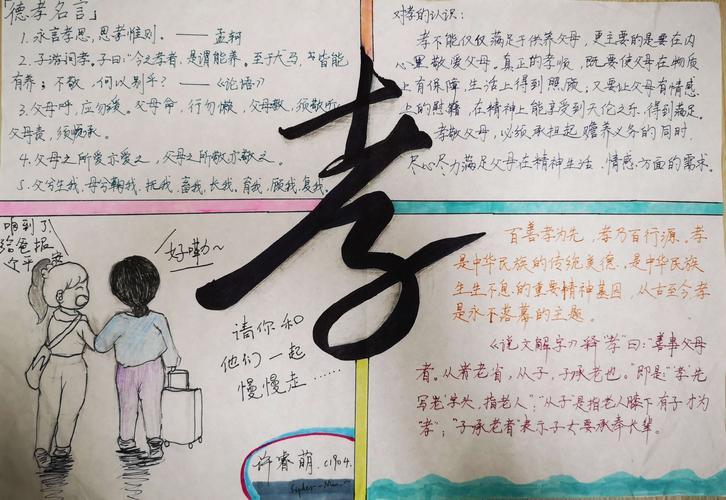 「德孝名言」
1. 永言孝思,思孝惟则。——孟轲
2. 子游问孝。子曰:“今之孝者,是谓能养。至于犬马,皆能
有养;不敬,何以别乎?——《论语》
3. 父母呼,应勿缓。父母命,行勿懒,父母教,须敬听
父母责,须顺承。
4. 父母之所爱亦爱之,父母之所敬亦敬之。
5. 父兮生我,母兮鞠我,抚我,畜我,长我,育我,顾我,复我。
对孝的认识:
孝不能仅仅满足于供养父母,更主要的是要在内
心里敬爱父母。真正的孝顺,既要使父母在物质
上有保障,生活上得到照顾;又要让父母有情感
上的慰藉,在精神上能享受到天伦之乐,得到满足。
孝敬父母,必须承担起赡养义务的同时,
尽心尽力满足父母在精神生活、情感方面的需求。
孝
咱到了
给爸报
个平安
好嘞~
请你和
他们一起
慢慢走……
许睿萌.C1904.
百善孝为先,孝乃百行源,孝
是中华民族的传统美德,是中华民族
生生不息的重要精神基因,从古至今孝
是永不落幕的主题。
《说文解字》释“孝”曰:“善事父母
者。从耂老省,从子,子承老也。”即是“孝”先
写老字头,指老人”;“从子”是指老人膝下有子才为
“孝”;“子承老者”表示子女要承奉长辈。